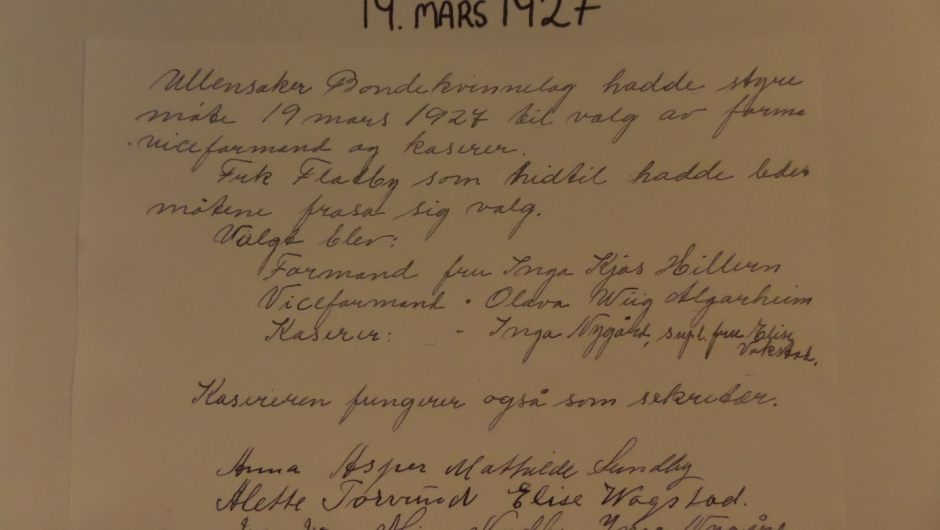 19. MARS 1927
Ullensaker Bondekvinnelag hadde styre
möte 19 mars 1927 til valg av forma
viceformand og kaserer.
Frk Flatby som hidtil hadde ledet
mötene frasa sig valg.
Valgt blev:
Formand fru Inga Kjos Hillern
Viceformand " Olava Wiig Algarheim
Kaserer: " Inga Nygård, supl. fru Elise
Vakstad.
Kasereren fungerer også som sekretær.
Anna Asper Mathilde Sundby
Alette Torvund Elise Wogstad.